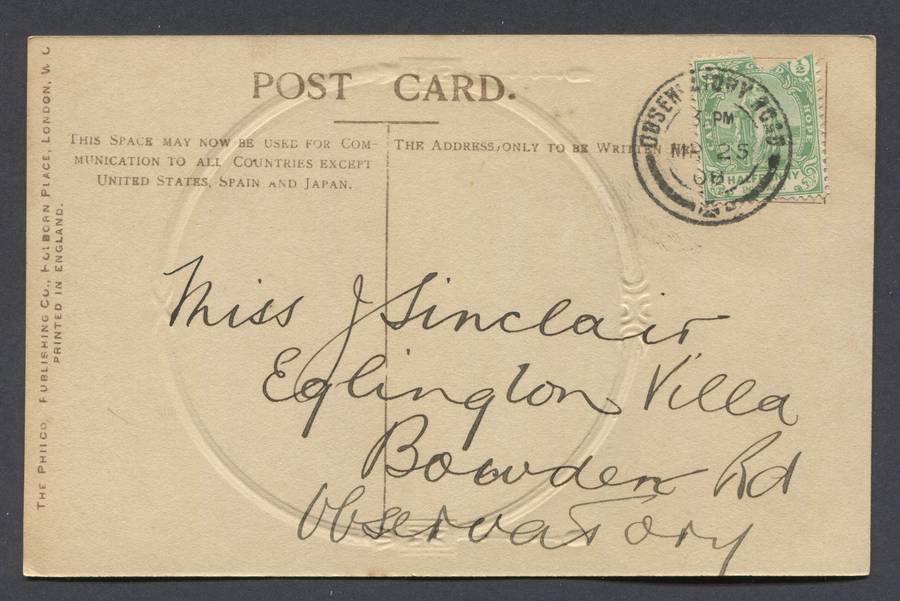 POST CARD.
THIS SPACE MAY NOW BE USED FOR COM-
MUNICATION TO ALL COUNTRIES EXCEPT
UNITED STATES, SPAIN AND JAPAN.
THE ADDRESS, ONLY TO BE WRITTEN
PM
25
HOPE
HALFPENNY
Miss J Sinclair
Eglington Villa
Bowden Rd
Observatory
THE PHILCO, PUBLISHING CO., HOLBORN PLACE, LONDON, W C
PRINTED IN ENGLAND.